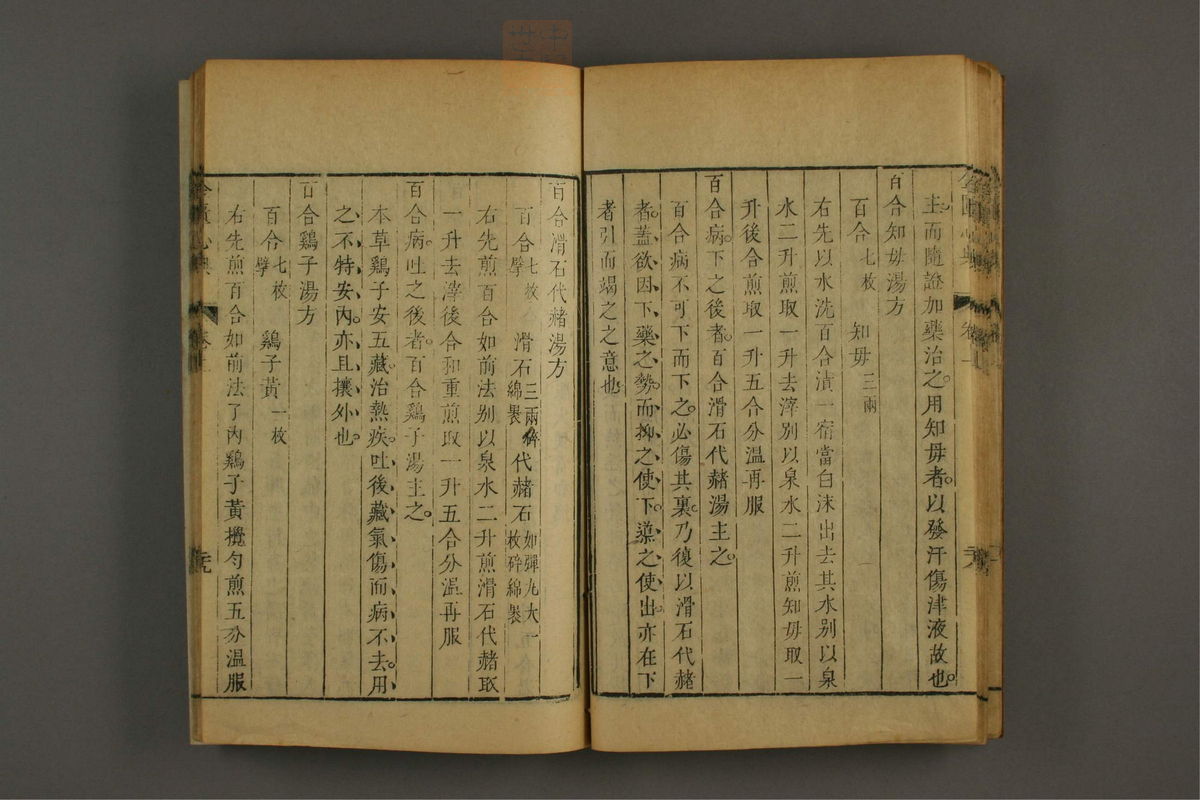 主而隨證加藥治之用知毋者以發汗傷津液故也
百合知毋湯方
百合七枚 知毋三兩
右先以水洗百合漬一宿當白沫出去其水别以泉
水二升煎取一升去滓别以泉水二升煎知毋取一
升後合煎取一升五合分温再服
百合病下之後者百合滑石代赭湯主之
百合病不可下而下之必傷其裏乃復以滑石代赭
者蓋欲因下藥之勢而抑之使下導之使出亦在下
者引而竭之之意也
百合滑石代赭湯方
百合七枚擘 滑石三兩碎綿裹 代赭石如彈丸大一枚碎綿裹
右先煎百合如前法别以泉水二升煎滑石代赭取
一升去滓後合和重煎取一升五合分温再服
百合病吐之後者百合鷄子湯主之
本草鷄子安五藏治熱疾吐後藏氣傷而病不去用
之不特安內亦且攘外也
百合鷄子湯方
百合七枚擘 鷄子黃一枚
右先煎百合如前法了內鷄子黃攪勻煎五分温服